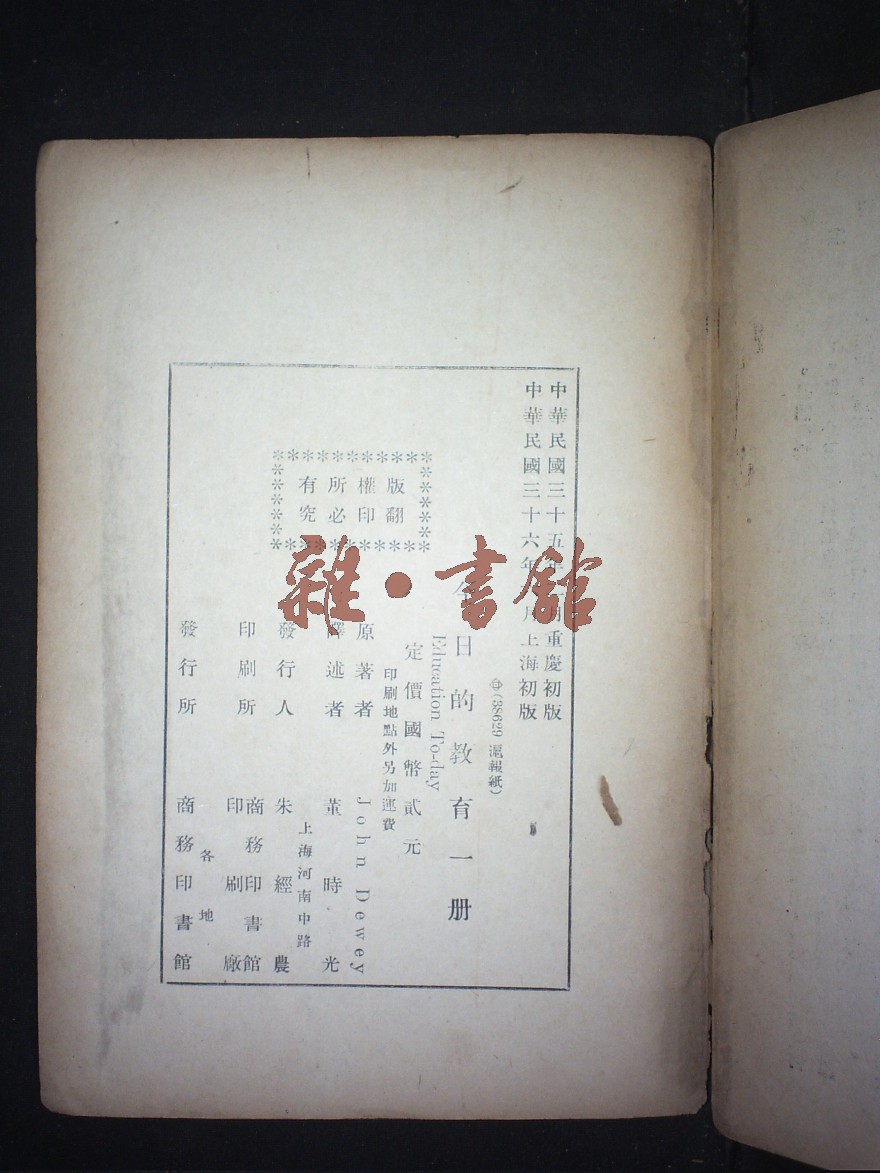 中華民國三十五年 月重慶初版
中華民國三十六年 月上海初版
(38629 滬報紙)
今日的教育一册
Education To-day
定價國幣貳元
印刷地點外另加運費
版權所有
翻印必究
原著者 John Dewey
譯述者 董時光
上海河南中路
發行人 朱經農
印刷所 商務印書館
印刷廠
各地
發行所 商務印書館
雜·書館